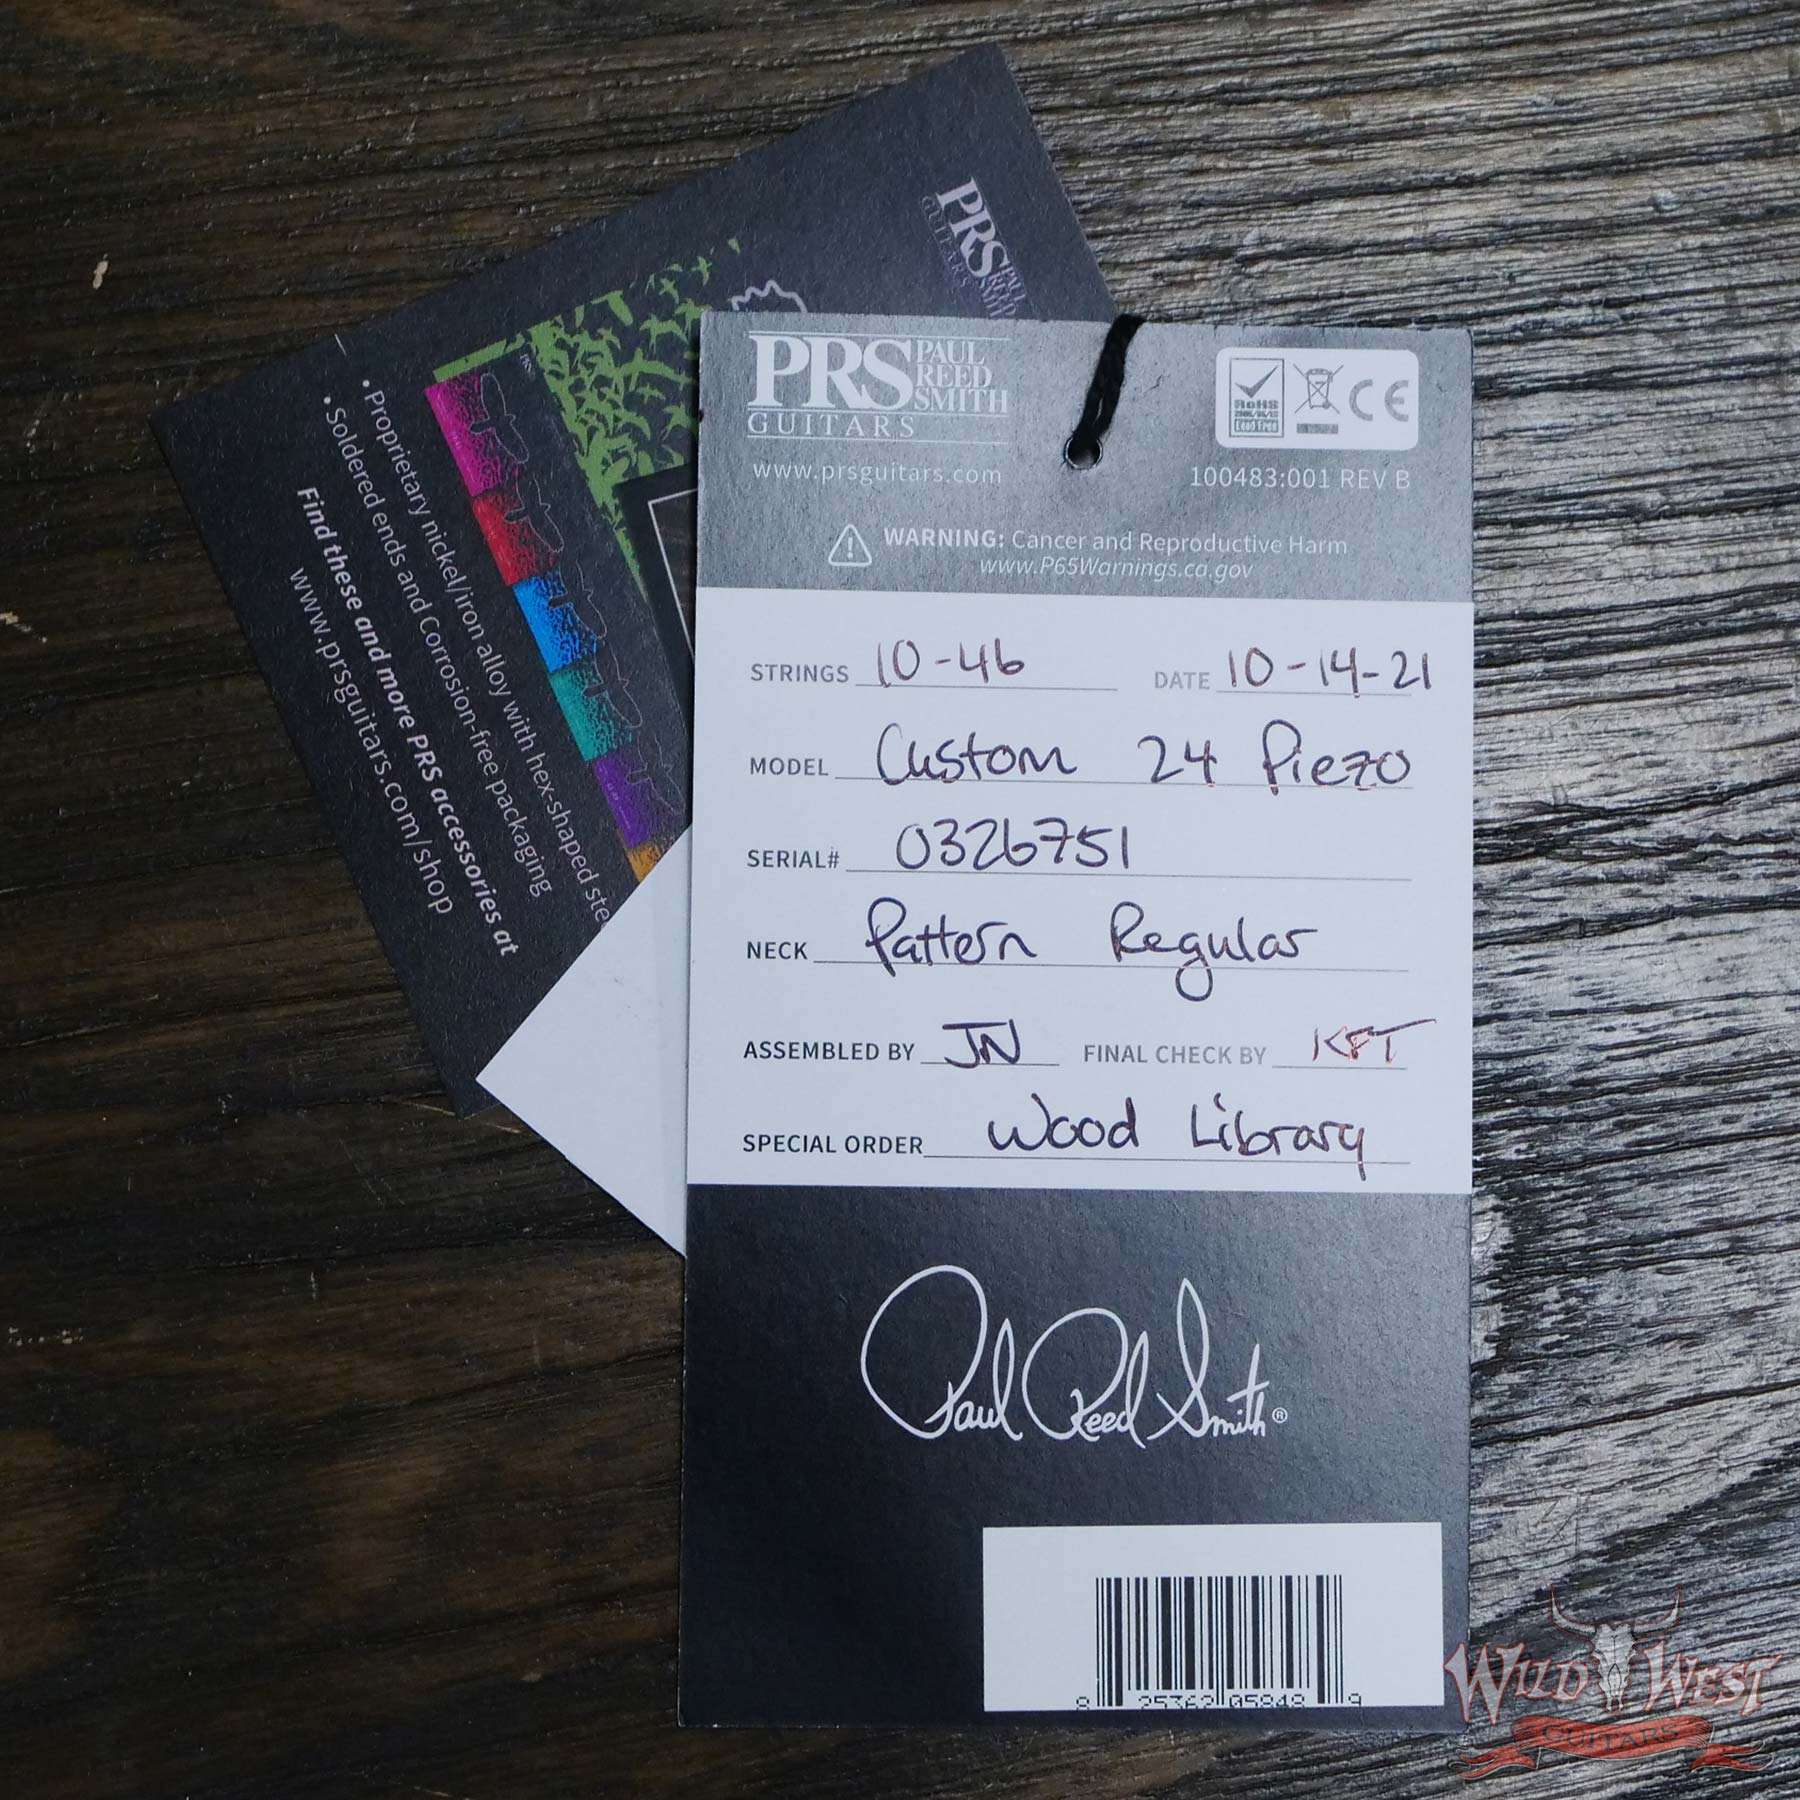 PRS PAUL REED SMITH
GUITARS
• Proprietary nickel/iron alloy with hex-shaped
• Soldered ends and Corrosion-free packaging
Find these and more PRS accessories at
www.prsguitars.com/shop
PRS PAUL REED SMITH
GUITARS
www.prsguitars.com
RoHS
Lead Free
CE
100483:001 REV B
WARNING: Cancer and Reproductive Harm
www.P65Warnings.ca.gov
STRINGS 10-46 DATE 10-14-21
MODEL Custom 24 Piezo
SERIAL# 0326751
NECK Pattern Regular
ASSEMBLED BY JN FINAL CHECK BY KFT
SPECIAL ORDER Wood Library
Paul Reed Smith®
8 25362 05848 9
WILD WEST
GUITARS